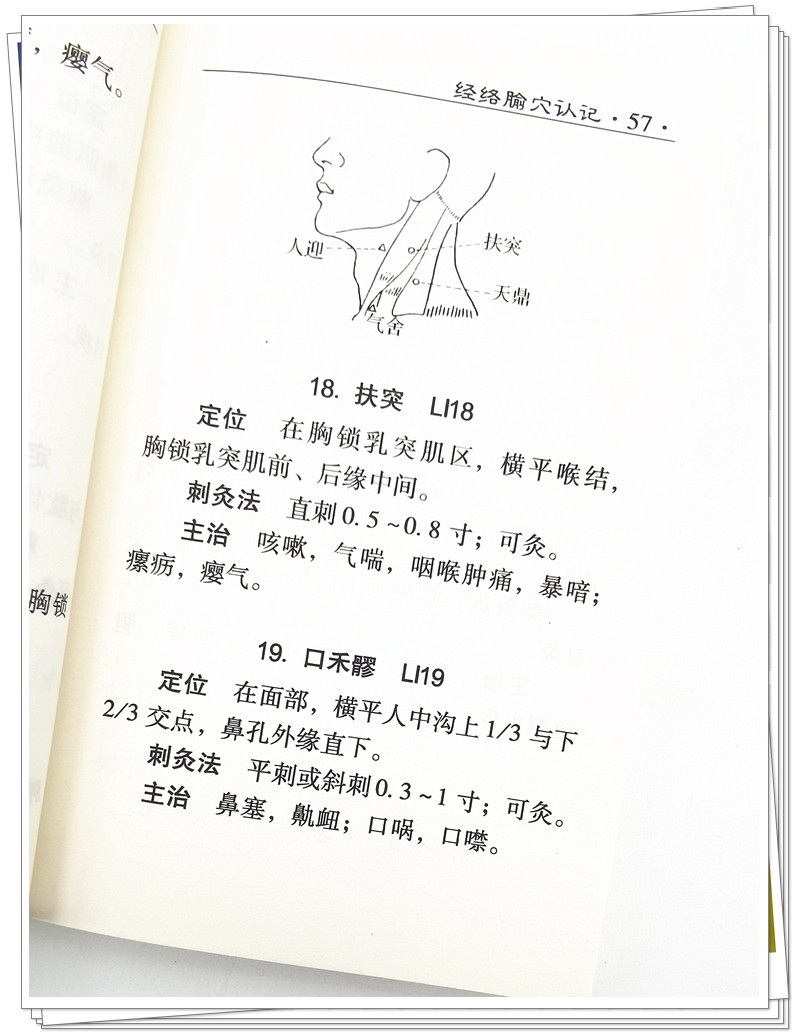 ，瘿气。
经络腧穴认记·57·
人迎
扶突
天鼎
气舍
18. 扶突 LI18
定位 在胸锁乳突肌区，横平喉结，
胸锁乳突肌前、后缘中间。
刺灸法 直刺0.5~0.8寸；可灸。
主治 咳嗽，气喘，咽喉肿痛，暴喑；
瘰疬，瘿气。
胸锁
19. 口禾髎 LI19
定位 在面部，横平人中沟上1/3与下
2/3交点，鼻孔外缘直下。
刺灸法 平刺或斜刺0.3~1寸；可灸。
主治 鼻塞，鼽衄；口㖞，口噤。